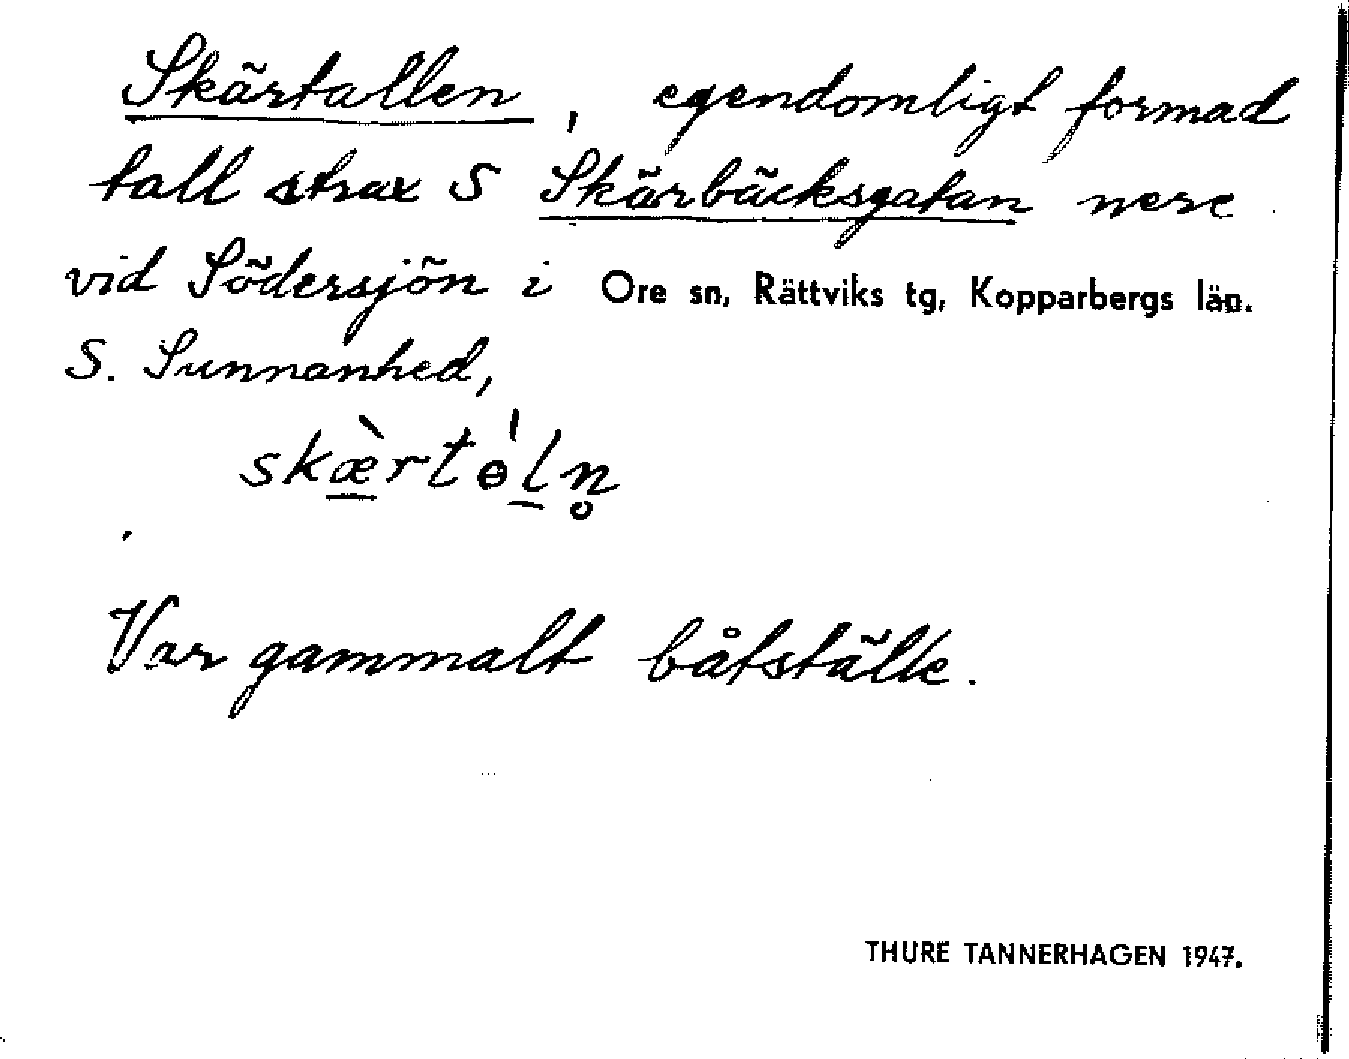 Skärtallen, egendomligt formad
tall strax S Skärbäcksgatan nere
vid Södersjön i Ore sn, Rättviks tg, Kopparbergs län.
S. Sunnanhed,
skæ̀rtɵ̍ln̥
Var gammalt båtställe.
THURE TANNERHAGEN 1947.